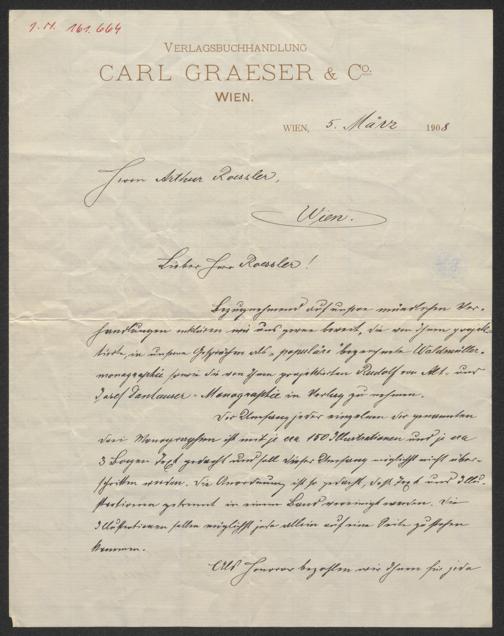 J. N. 161.664
VERLAGSBUCHHANDLUNG
CARL GRAESER & Co.
WIEN.
WIEN, 5. März 1908
Herrn Arthur Roessler,
Wien.
Lieber Herr Roessler!
Bezugnehmend auf unsere mündlichen Ver-
handlungen erklären wir uns gerne bereit, die von Ihnen projek-
tierte, in unseren Gesprächen als "populäre" bezeichnete Waldmüller-
monographie sowie die von Ihnen projektierten Rudolf von Alt- und
Josef Danhauser-Monographie in Verlag zu nehmen.
Der Umfang jeder einzelnen der genannten
drei Monographien ist mit je cca 150 Illustrationen und je cca
3 Bogen Text gedacht und soll dieser Umfang möglichst nicht über-
schritten werden. Die Anordnung ist so gedacht, daß Text und Illu-
strationen getrennt in einem Band vereinigt werden. Die
Illustrationen sollen möglichst jede allein auf eine Seite zu stehen
kommen.
Als Honorar bezahlen wir Ihnen für jede